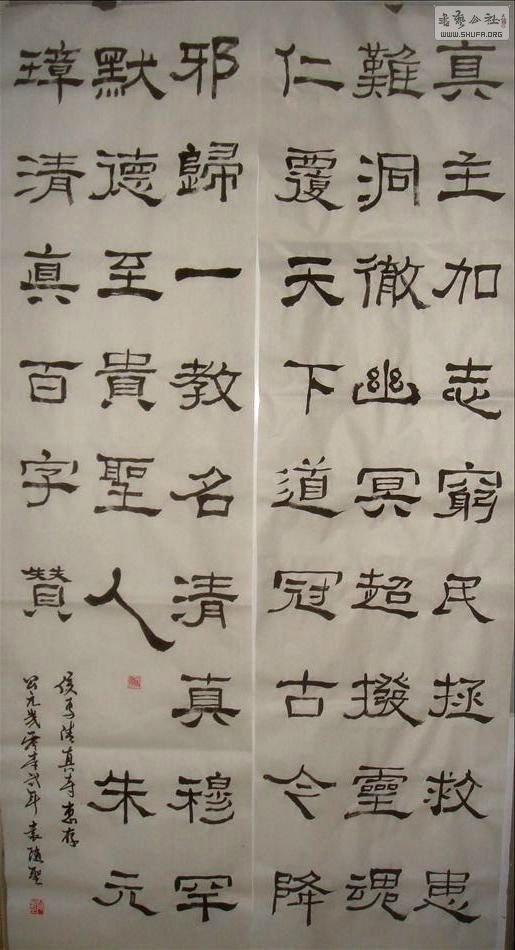 真主加志窮民拯救患
難洞徹幽冥超撥靈魂
仁覆天下道冠古今降
邪歸一教名清真穆罕
默德至貴聖人朱元
璋清真百字贊
侯马清真寺惠存
公元年袁随聖
書藝公社
WWW.SHUFA.ORG